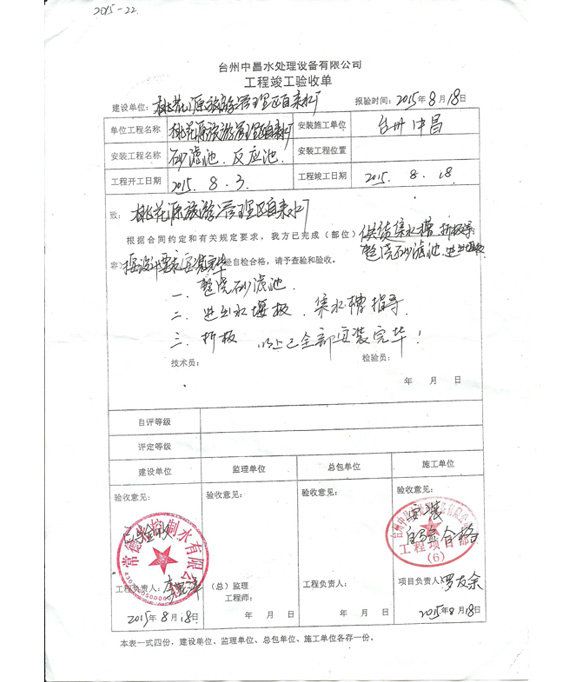 2015-22
台州中昌水处理设备有限公司
工程竣工验收单
建设单位：桃花源旅游管理区自来水厂 报验时间：2015年8月18日
单位工程名称 桃花源旅游管理区自来水厂 安装施工单位 台州中昌
安装工程名称 砂滤池、反应池 安装工程位置
工程开工日期 2015.8.3 工程竣工日期 2015.8.18
致：桃花源旅游管理区自来水厂
根据合同约定和有关规定要求，我方已完成（部位）供货集水槽
整浇砂滤池
容 经自检合格，请予查验和验收。
一、整浇砂滤池
二、进出水堰板 集水槽指导
三、折板 以上已全部安装完毕！
技术员： 检验员：
年 月 日
自评等级
评定等级
建设单位 监理单位 总包单位 施工单位
验收意见： 验收意见： 验收意见： 验收意见：
安装
合格
工程项目部
(6)
工程负责人： （总）监理 工程负责人： 项目负责人：罗友余
工程师：
2015年8月18日 年 月 日 年 月 日 2015年8月18日
本表一式四份，建设单位、监理单位、总包单位、施工单位各存一份。